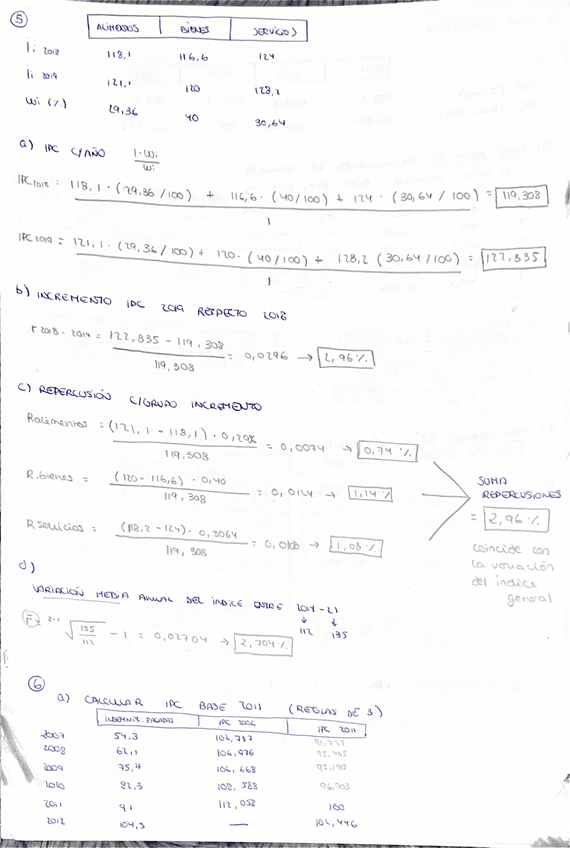 5
ALIMENTOS BIENES SERVICIOS
Ii 2018 118,1 116,6 124
Ii 2019 121,1 120 128,2
Wi (%) 29,36 40 30,64
a) IPC C/AÑO I·Wi / Wi
IPC 2018 = 118,1 · (29,36 /100) + 116,6 · (40/100) + 124 · (30,64 / 100) = 119,308
1
IPC 2019 = 121,1 · (29,36 /100) + 120 · (40/100) + 128,2 (30,64/100) = 122,835
1
b) INCREMENTO IPC 2019 RESPECTO 2018
r 2018-2019 = 122,835 - 119,308 = 0,0296 → 2,96%
119,308
c) REPERCUSIÓN C/GRUPO INCREMENTO
Ralimentos = (121,1 - 118,1) · = 0,0074 → 0,74%
119,308
R.bienes = (120 - 116,6) · 0,40 = → 1,14%
119,308
R servicios = - 124) · 0,3064 = → 1,08%
119,308
SUMA
REPERCUSIONES
= 2,96%
coincide con
la variación
del índice
general
d)
VARIACIÓN MEDIA ANUAL DEL ÍNDICE ENTRE -21
↓ ↓
112 135
√ 135/112 - 1 = 0,02704 → 2,704%
6
a) CALCULAR IPC BASE 2011 (REGLAS DE 3)
INDEMNIZ. PAGADAS IPC 2006 IPC 2011
2007 54,3 102,787
2008 62,1 106,976
2009 75,4 106,668
2010 82,3 108,588
2011 91 112,058 100
2012 104,3 — 102,446